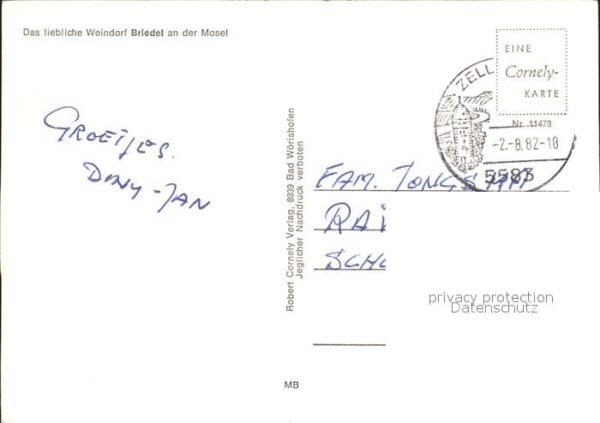 Das liebliche Weindorf Briedel an der Mosel
GROETJES.
DINY-JAN
Robert Cornely Verlag, 8939 Bad Wörishofen
Jeglicher Nachdruck verboten
MB
EINE
Cornely-
KARTE
Nr. 11478
ZELL
-2.-8.82-18
5583
FAM. JONGSMA
RAI
SCHO
privacy protection
Datenschutz